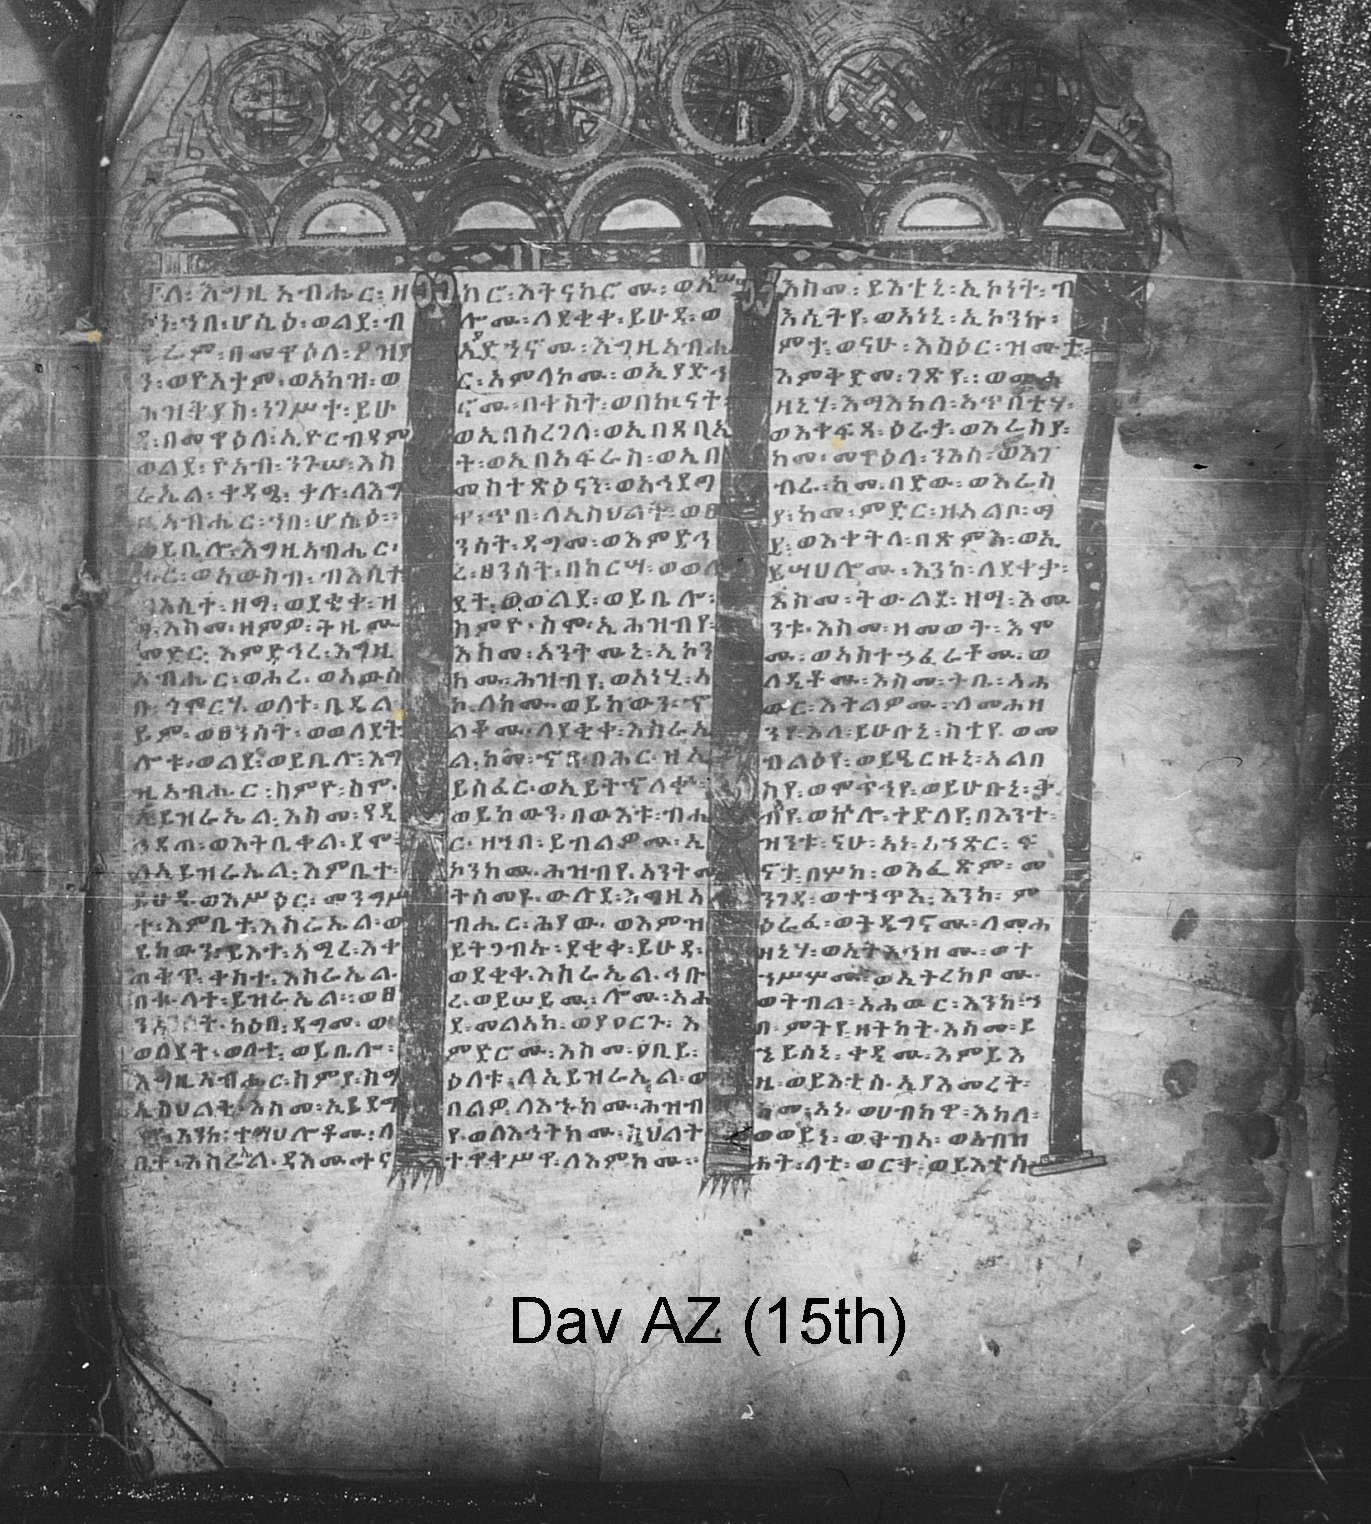 ቃለ፡እግዚአብሔር፡ዘ
ኮነ፡ኀበ፡ሆሴዕ፡ወልደ፡ብ
ኤራም፡በመዋዕለ፡ዖዝያ
ን፡ወዮአትም፡ወአካዝ፡ወ
ሕዝቅያስ፡ነገሥተ፡ይሁ
ዳ፡በመዋዕለ፡ኢዮርብዓም
ወልደ፡ዮአብ፡ንጉሠ፡እስ
ራኤል፡ቀዳሜ፡ቃሉ፡ለእግ
ዚአብሔር፡ኀበ፡ሆሴዕ።
ወይቤሎ፡እግዚአብሔር፡
ሑረ፡ወአውስብ፡ብእሲተ
ብእሲት፡ዘማ፡ወደቂቀ፡ዘ
ማ፡እስመ፡ዘምዎ፡ትዜሙ
ምድር፡እምድኅረ፡እግዚ
አብሔር፡ወሖረ፡ወአውሰ
ባ፡ጎሞርሃ፡ወለተ፡ቤዴል
ይም፡ወፀንሰት፡ወወለደት
ሎቱ፡ወልደ፡ወይቤሎ፡እግ
ዚአብሔር፡ስምዮ፡ስሞ፡
ኢይዝራኤል፡እስመ፡ዓዲ
ኅዳጠ፡ወእትቤቀል፡ደሞ፡
ለኢይዝራኤል፡እምቤተ፡
ይሁዳ፡ወእሥዕር፡መንግሥ
ተ፡እምቤተ፡እስራኤል፡ወ
ይከውን፡ይእተ፡አሚረ፡እቀ
ጠቅጥ፡ቀስተ፡እስራኤል፡
በቈላተ፡ይዝራኤል።ወፀ
ንሰት፡ካዕበ፡ዳግመ፡ወ
ወለደት፡ወለተ፡ወይቤሎ፡
እግዚአብሔር፡ስምያ፡ስማ
ኢስህልት፡እስመ፡ኢይደግ
ም፡እንከ፡ተሣህሎቶሙ፡ለ
ቤተ፡እስራኤል፡ዳእሙ፡ተና
ከሮ፡እትናከሮሙ፡ወእ
ሎሙ፡ለደቂቀ፡ይሁዳ፡ወ
አድኅኖሙ፡እግዚአብሔ
ር፡አምላኮሙ፡ወኢያድኅ
ኖሙ፡በቀስት፡ወበኲናት፡
ወኢበሰረገላ፡ወኢበጸቢኢ
ት፡ወኢበአፍራስ፡ወኢበ
መስተጽዕናን፡ወአኅደግ
ዋ፡ጥበ፡ለኢስህልት፡ወፀ
ንሰት፡ዳግመ፡ወእምድኅ
ረ፡ፀንሰት፡በከርሣ፡ወወለ
ደት፡ወወልደ፡ወይቤሎ፡
ስምዮ፡ስሞ፡ኢሕዝብየ፡
እስመ፡አንትሙኒ፡ኢኮን
ክሙ፡ሕዝብየ፡ወአነሂ፡ኢ
ኮ፡ለክሙ፡ወይከውን፡ኍ
ላቆሙ፡ለደቂቀ፡እስራኤ
ል፡ከመ፡ኆፃ፡ባሕር፡ዘኢ
ይሰፈር፡ወኢይትኌለቍ፡
ወይከውን፡በውእቱ፡ብሔ
ር፡ዘኀበ፡ይብልዎሙ፡ኢ
ኮንክሙ፡ሕዝብየ፡አንትሙ
ትሰመዩ፡ውሉደ፡እግዚአ
ብሔር፡ሕያው፡ወእምዝ
ይትጋብኡ፡ደቂቀ፡ይሁዳ፡
ወደቂቀ፡እስራኤል፡ኅቡ
ረ፡ወይሠይሙ፡ሎሙ፡አሐ
ደ፡መልአከ፡ወያዐርጉ፡እ
ምድሮሙ፡እስመ፡ዐቢይ፡
ዕለቱ፡ለኢይዝራኤል፡ወ
በልዎ፡ለእኁክሙ፡ሕዝብ
የ፡ወለእኅትክሙ፡ሺህልት
ተዋቀሥዋ፡ለእምክሙ።
እስመ፡ይእቲኒ፡ኢኮነት፡ብ
እሲትየ፡ወአነኒ፡ኢኮንኩ፡
ምታ፡ወናሁ፡አስዕር፡ዝሙታ፡
እምቅድመ፡ገጽየ፡ወ
ዘኒሃ፡እማእከለ፡አጥባቲሃ፡
ወእቀፍዳ፡ዕራቃ፡ወእሬስያ፡
ከመ፡መዋዕለ፡ንእሳ፡ወእገ
ብራ፡ከመ፡በድው፡ወእሬስ
ያ፡ከመ፡ምድር፡ዘአልቦ፡ማ
ይ፡ወእቀትላ፡በጽምእ፡ወኢ
ይሣህሎሙ፡እንከ፡ለደቂቃ፡
እስመ፡ትውልደ፡ዘማ፡እሙ
ንቱ፡እስመ፡ዘመወት፡እሞ
ሙ፡ወአስተኃፈረቶሙ፡ወ
ላዲቶሙ፡እስመ፡ትቤ፡አሐ
ውር፡እትልዎሙ፡ለመሐዘ
ንየ፡እለ፡ይሁቡኒ፡ሲሲየ፡ወመ
ብልዕየ፡ወይዴርዙኒ፡አልባ
ስየ፡ወሞጥኅየ፡ወይሁቡኒ፡ቅ
ብየ፡ወኵሎ፡ተድላየ፡በእንተ፡
ዝንቱ፡ናሁ፡አነ፡አኀጽር፡ፍ
ኖታ፡በሦክ፡ወእፈጽም፡መ
ንገዳ፡ወተኀጥእ፡እንከ፡ም
ዕራፈ፡ወትዴግኖሙ፡ለመሐ
ዘኒሃ፡ወኢትእኅዘሙ፡ወተ
ኀሥሦሙ፡ወኢትረክቦሙ፡
ወትብል፡አሐውር፡እንከ፡ኀ
በ፡ምትየ፡ዘትካት፡እስመ፡ይ
ኄይሰኒ፡ቀዲሙ፡እምይእ
ዜ፡ወይእቲሰ፡ኢያእመረት፡
ከመ፡አነ፡ወሀብክዋ፡እክለ፡
ወወይነ፡ወቅብአ፡ወአብዛ
ሕኩ፡ላቲ፡ወርቀ፡ወይእቲሰ
Dav AZ (15th)